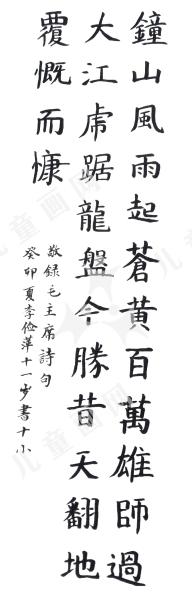 鐘山風雨起蒼黄百萬雄師過
大江虎踞龍盤今勝昔天翻地
覆慨而慷
敬録毛主席詩句
癸卯夏李儉萍十一岁書十小
儿童画网